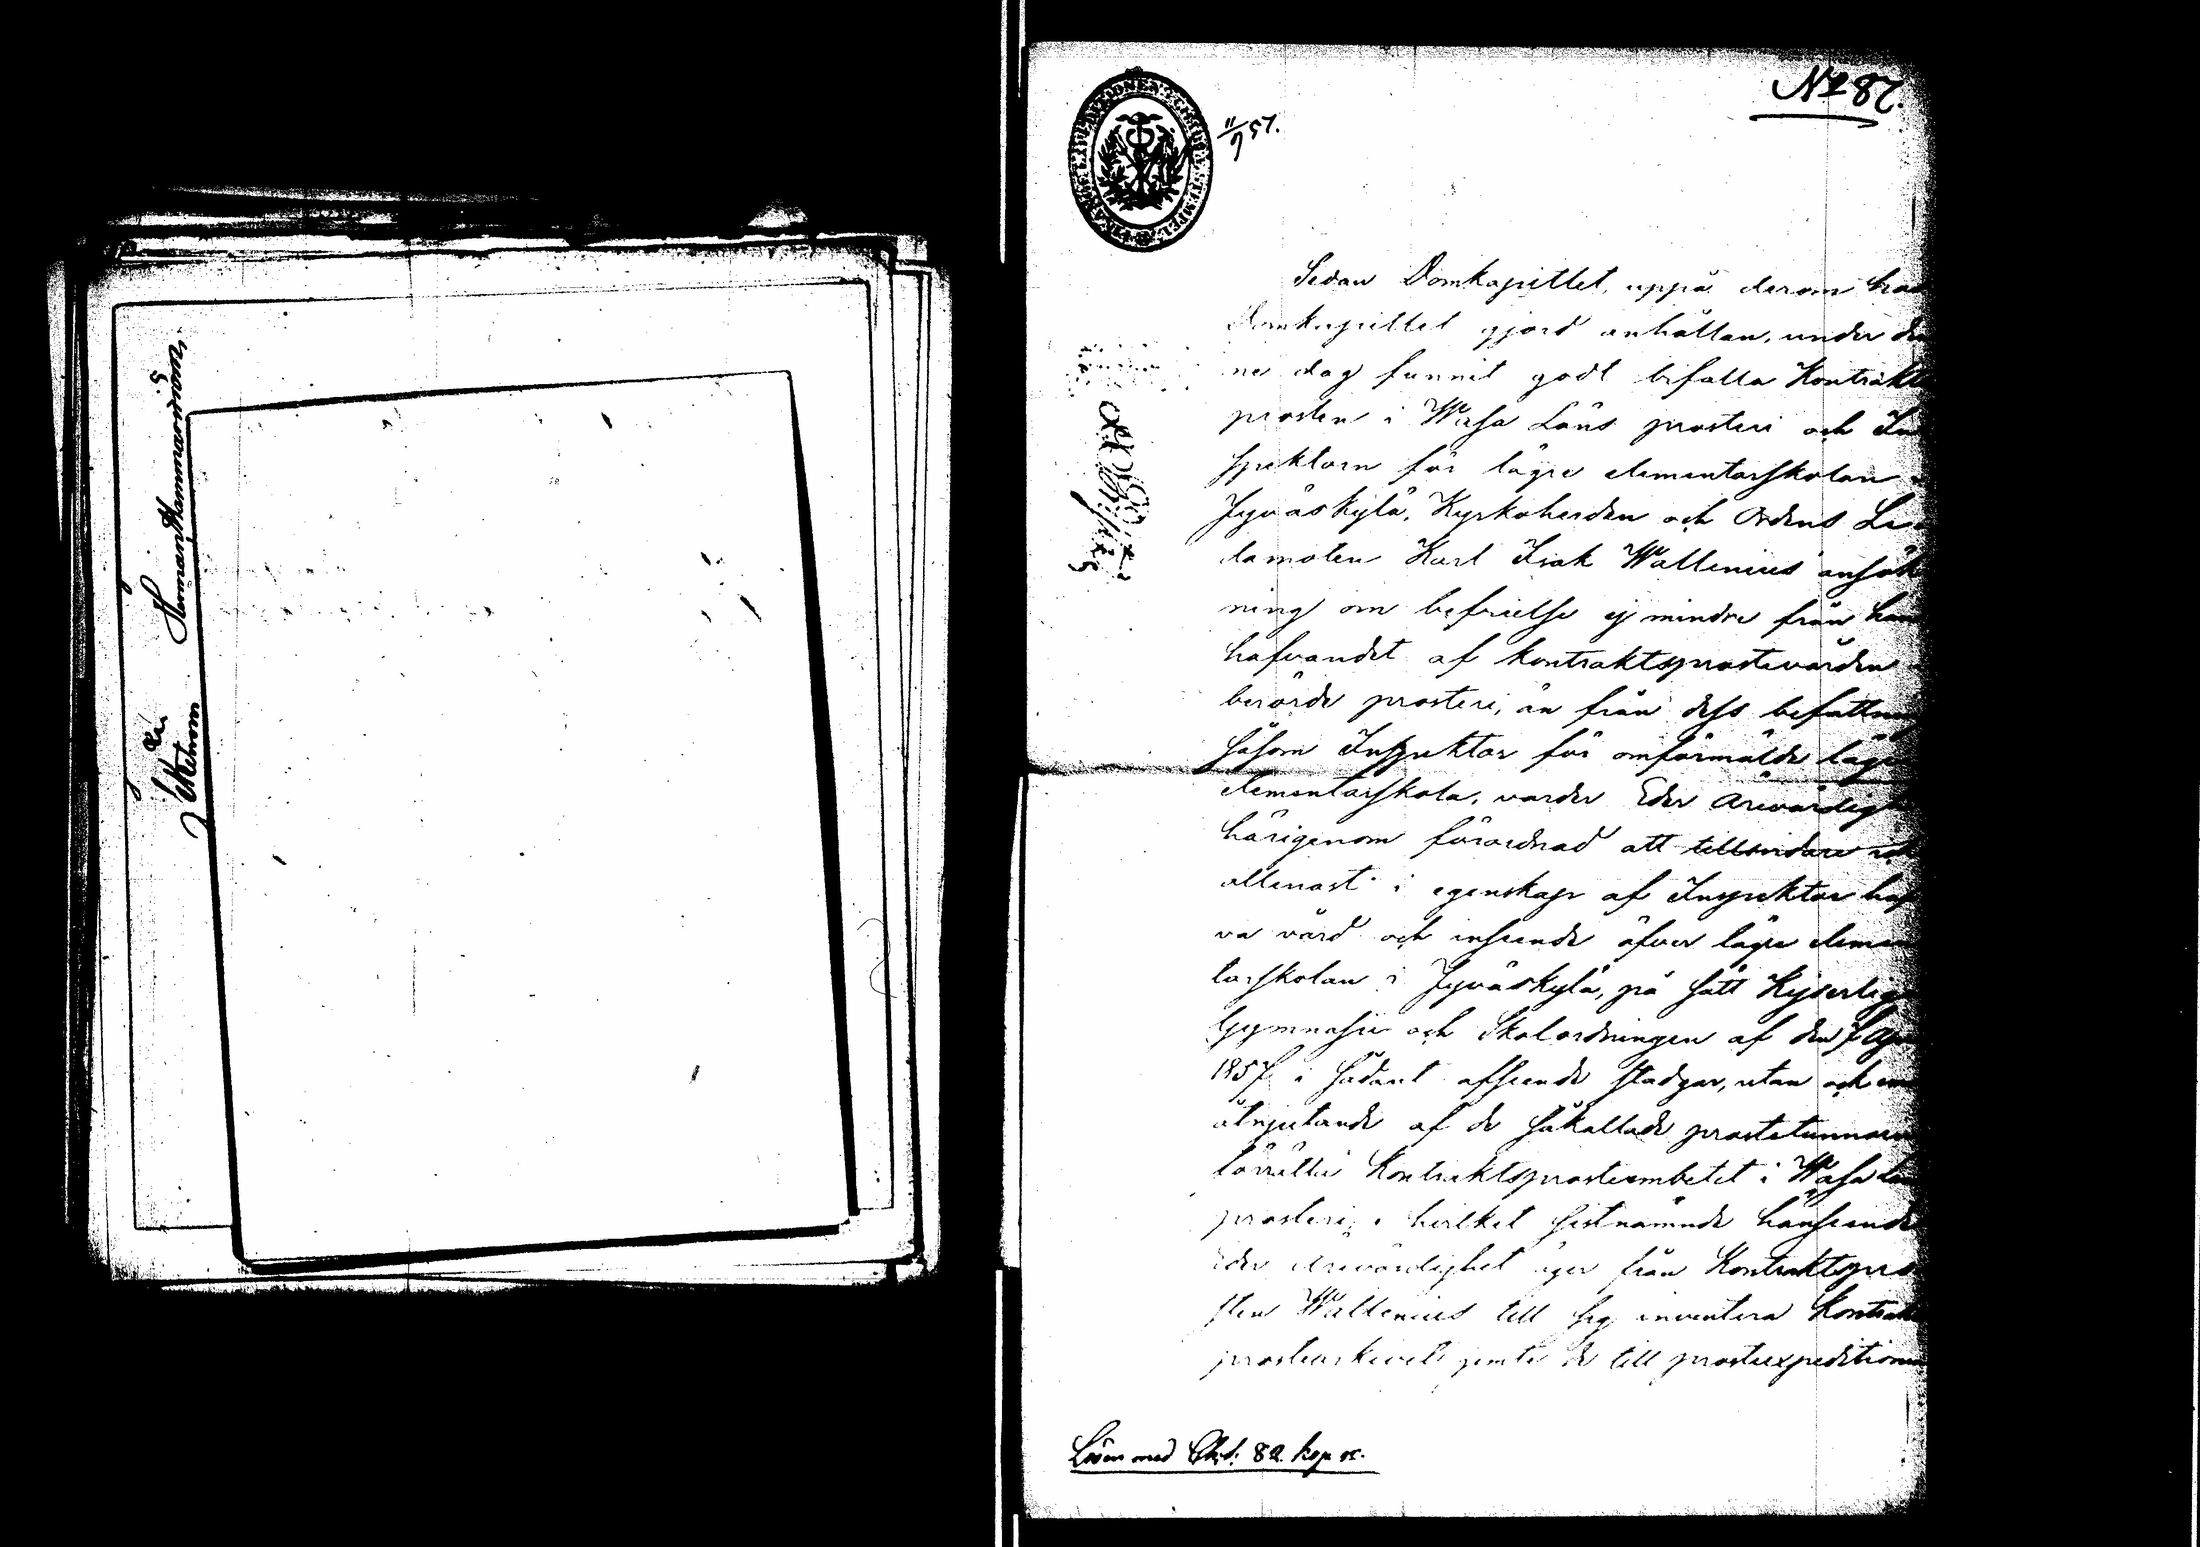 Hemmanskammarorören,
Ekstrom
No 87.
11/9 57.
Sedan Domkapitlet, uppå derom hos
Domkapitlet gjord anhållan, under den
ne dag funnit godt befalla Kontrakts
prosten i Wasa Läns prosteri och In
spektorn för lägre elementarskolan i
Jyväskylä, Kyrkoherden och Ordens Le
damoten Karl Isak Wallenius ansök
ning om befrielse ej mindre från han
hafvandet af kontraktsprostevården i
berörde prosteri, än från dess befattning
såsom Inspektor för omförmälde lägre
elementarskola, varder Eder Ärevördighet
härigenom förordnad att tillsvidare icke
allenast i egenskap af Inspektor haf
va vård och inseende öfver lägre elemen
tarskolan i Jyväskylä, på sätt Kejserliga
Gymnasii och Skolordningen af den 7 Apr
1857 i sådant afseende stadgar, utan och em
åtnjutande af de såkallade prostetunnorna
förrätta Kontraktsprosteembetet i Wasa Läns
prosteri, i hvilket sistnämnde hänseende
Eder Ärevördighet äger från Kontraktspro
sten Wallenius till sig inventera Kontrakts
prostearkivet jemte de till prosteexpeditionen
Lösen med Chst: 82. kop sr.